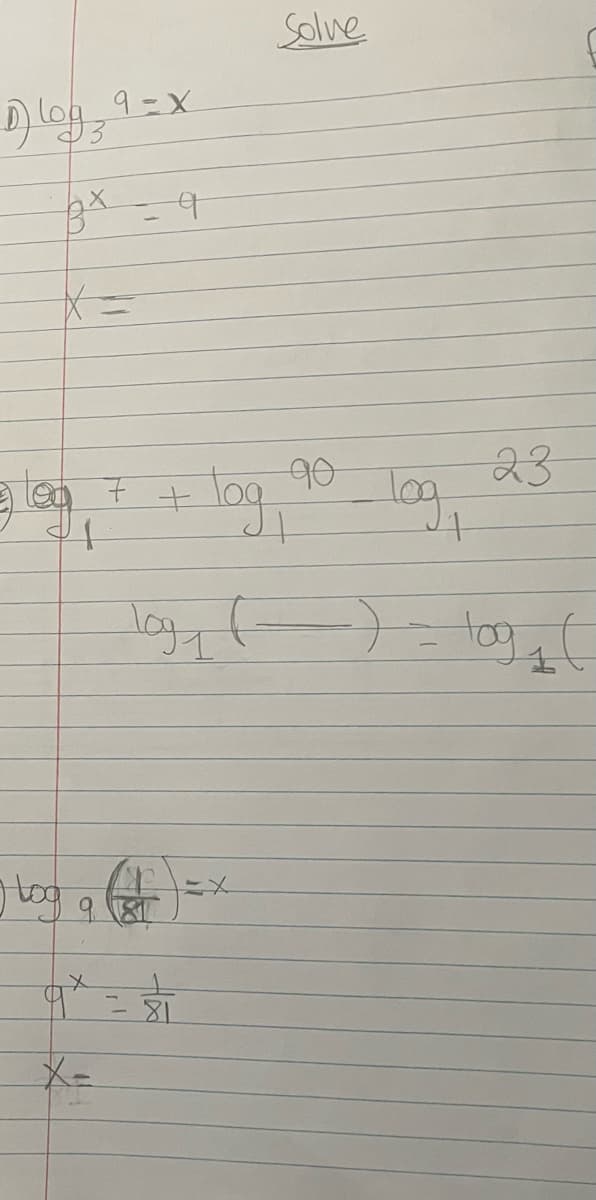 Solve
D) log₃ 9 = x
3ˣ = 9
x =
log₁ 7 + log₁ 90 - log₁ 23
log₁ (—) = log₁ (
log₉ (1/81) = x
9ˣ = 1/81
x =